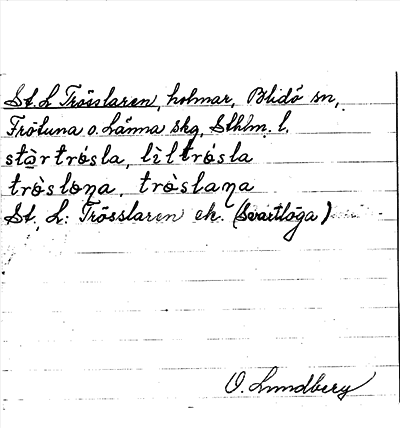 St. L Trösslaren, holmar, Blidö sn,
Frötuna o. Länna skg, Sthlm. l.
stòrtrö́sla, lìltrö́sla
trö̀sloṇa, trö̀slaṇa
St. L: Trösslaren ek. (Svartlöga)
O. Lundberg